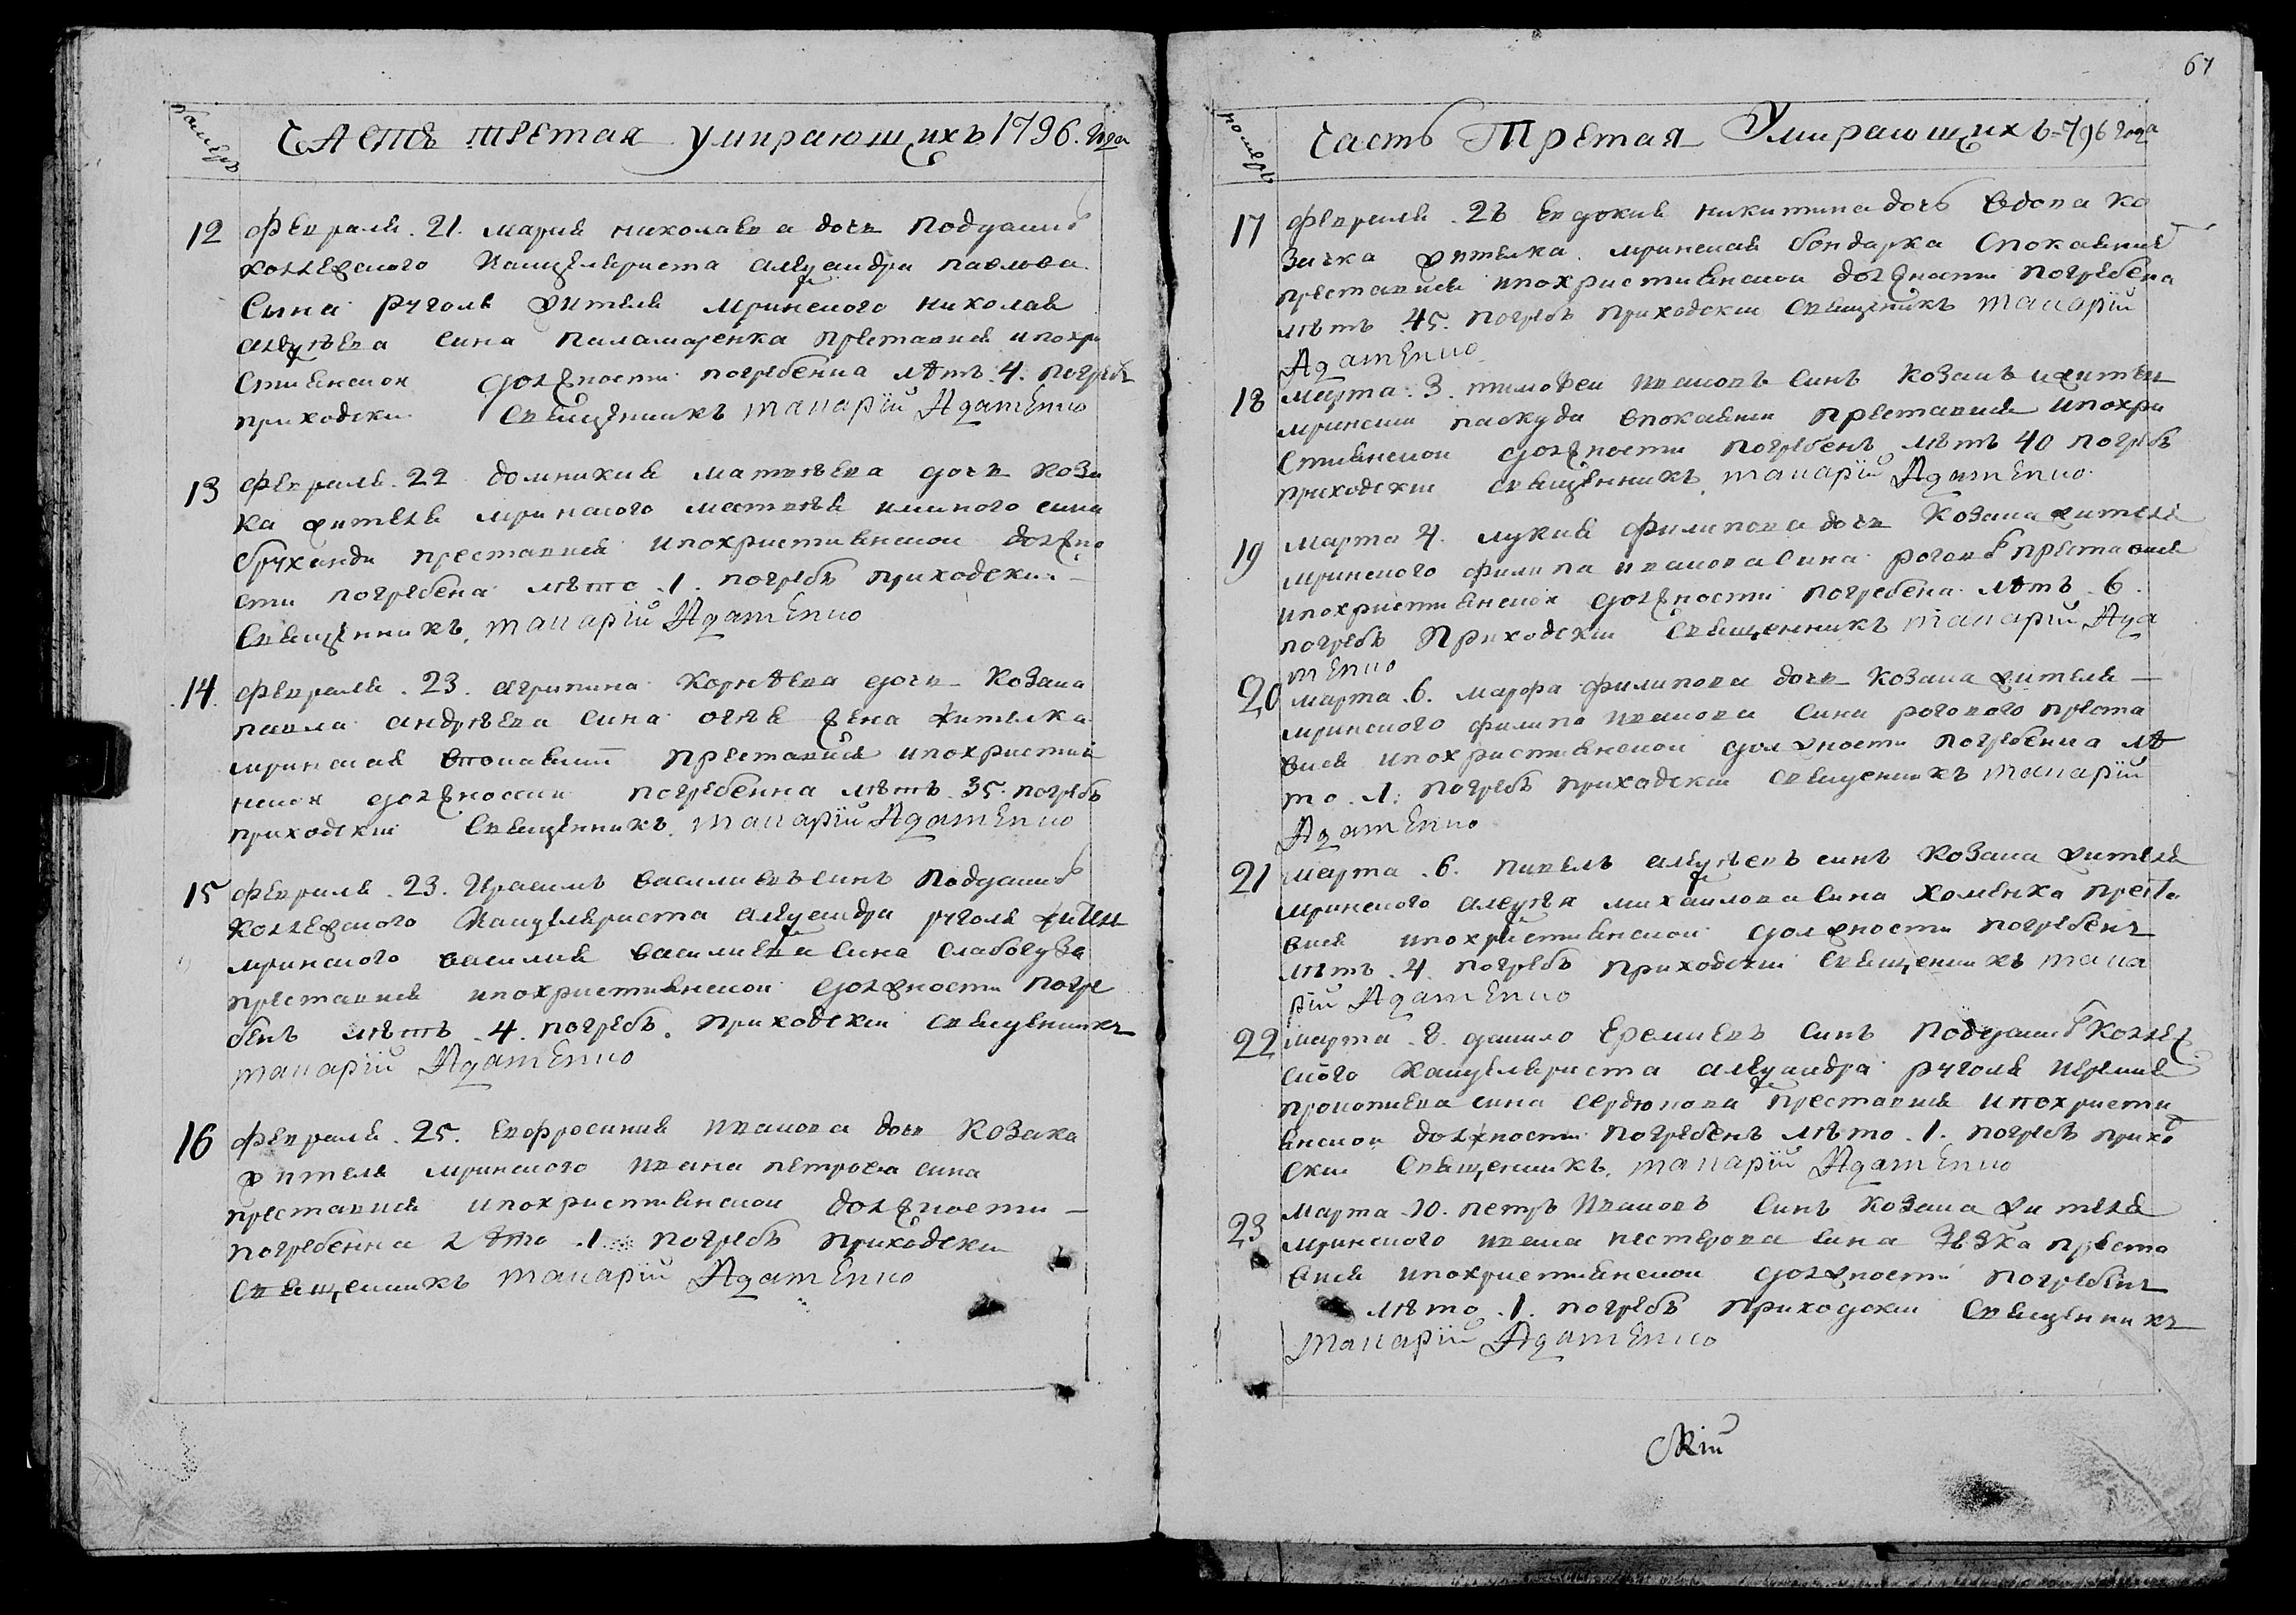 номеръ
Часть третая умирающихъ 1796. года
12 февраля. 21. мария николаева дочь подданно
коллежского канцеляриста александра павлова
сына риголя жителя мринского николая
алексѣева сина паламаренка преставися и по хри
стиянской должности погребенна лѣтъ. 4. погребъ
приходски священникъ макарій Адаменко
13 февраля. 22 домникия матвѣева дочь коза
ка жителя мринского матвѣя сина
преставися и по християнской должно
сти погребена лѣто .1. погребъ приходски
священникъ, макарій Адаменко
14 февраля. 23. агрипина корнѣева дочь козака
павла андрѣева сина жена жителка
мринская преставися и по християн
ской должности погребенна лѣтъ. 35. погребъ
приходскии священникъ, макарій Адаменко
15 февраля. 23. Ирасимъ василиевъ синъ подданно
коллежского канцеляриста александра риголя жител
мринского василия василиева сина
преставися и по християнской должности погре
бенъ лѣтъ .4. погребъ. приходскии священникъ
макарій Адаменко
16 февраля. 25. евфросиния иванова дочь козака
жителя мринского ивана петрова сина
преставися и по християнской должности
погребенна лѣто .1. погребъ приходски
священникъ макарій Адаменко
67
номеръ
Часть Третая Умирающихъ 796 года
17 февраля. 28 евдокия никитина дочь вдова ко
зачка жителка мринская бондарка с покаяния
преставися и по християнской должности погребена
лѣтъ .45. погребъ приходскии священникъ макарій
Адаменко
18 марта. 3. тимофеи ивановъ синъ козакъ и жител
мрински паскуда с покаянии преставися и по хри
стиянской должности погребенъ лѣтъ 40 погребъ
приходскии священникъ, макарій Адаменко
19 марта 4. лукия филипова дочь козака жителя
мринского филипа иванова сина рогов преставися
и по християнской должности погребена лѣтъ .6.
погребъ приходскии священникъ макарій Ада
менко
20 марта .6. марфа филипова дочь козака жителя
мринского филипа иванова сина рогового преста
вися и по християнской должности погребенна лѣ
то .1. погребъ приходскии священникъ макарій
Адаменко
21 марта .6. павелъ алексѣевъ синъ козака жителя
мринского алексѣя михаилова сина хоменка преста
вися и по християнской должности погребенъ
лѣтъ .4. погребъ приходскии священникъ мака
рій Адаменко
22 марта .8. данило Еремиевъ синъ подданно коллеж
ского канцеляриста александра риголя иеремия
прокопиева сина сердюкова преставися и по христи
янской должности погребенъ лѣто .1. погребъ приход
ски священникъ, макарій Адаменко
23 марта .10. петръ ивановъ синъ козака жителя
мринского ивана нестерова сина преста
вися и по християнской должности погребенъ
лѣто .1. погребъ приходскии священникъ
макарій Адаменко
скій